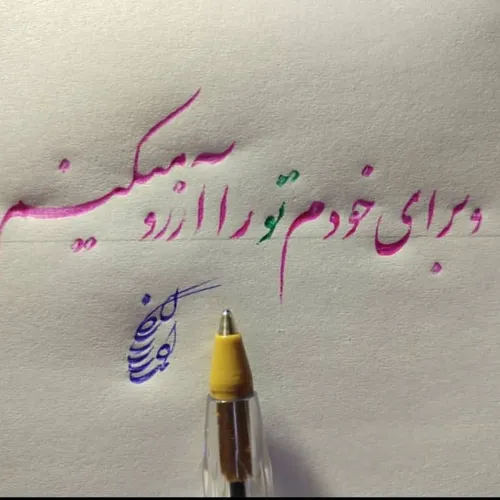 و برای خودم تو را آرزو میکنم